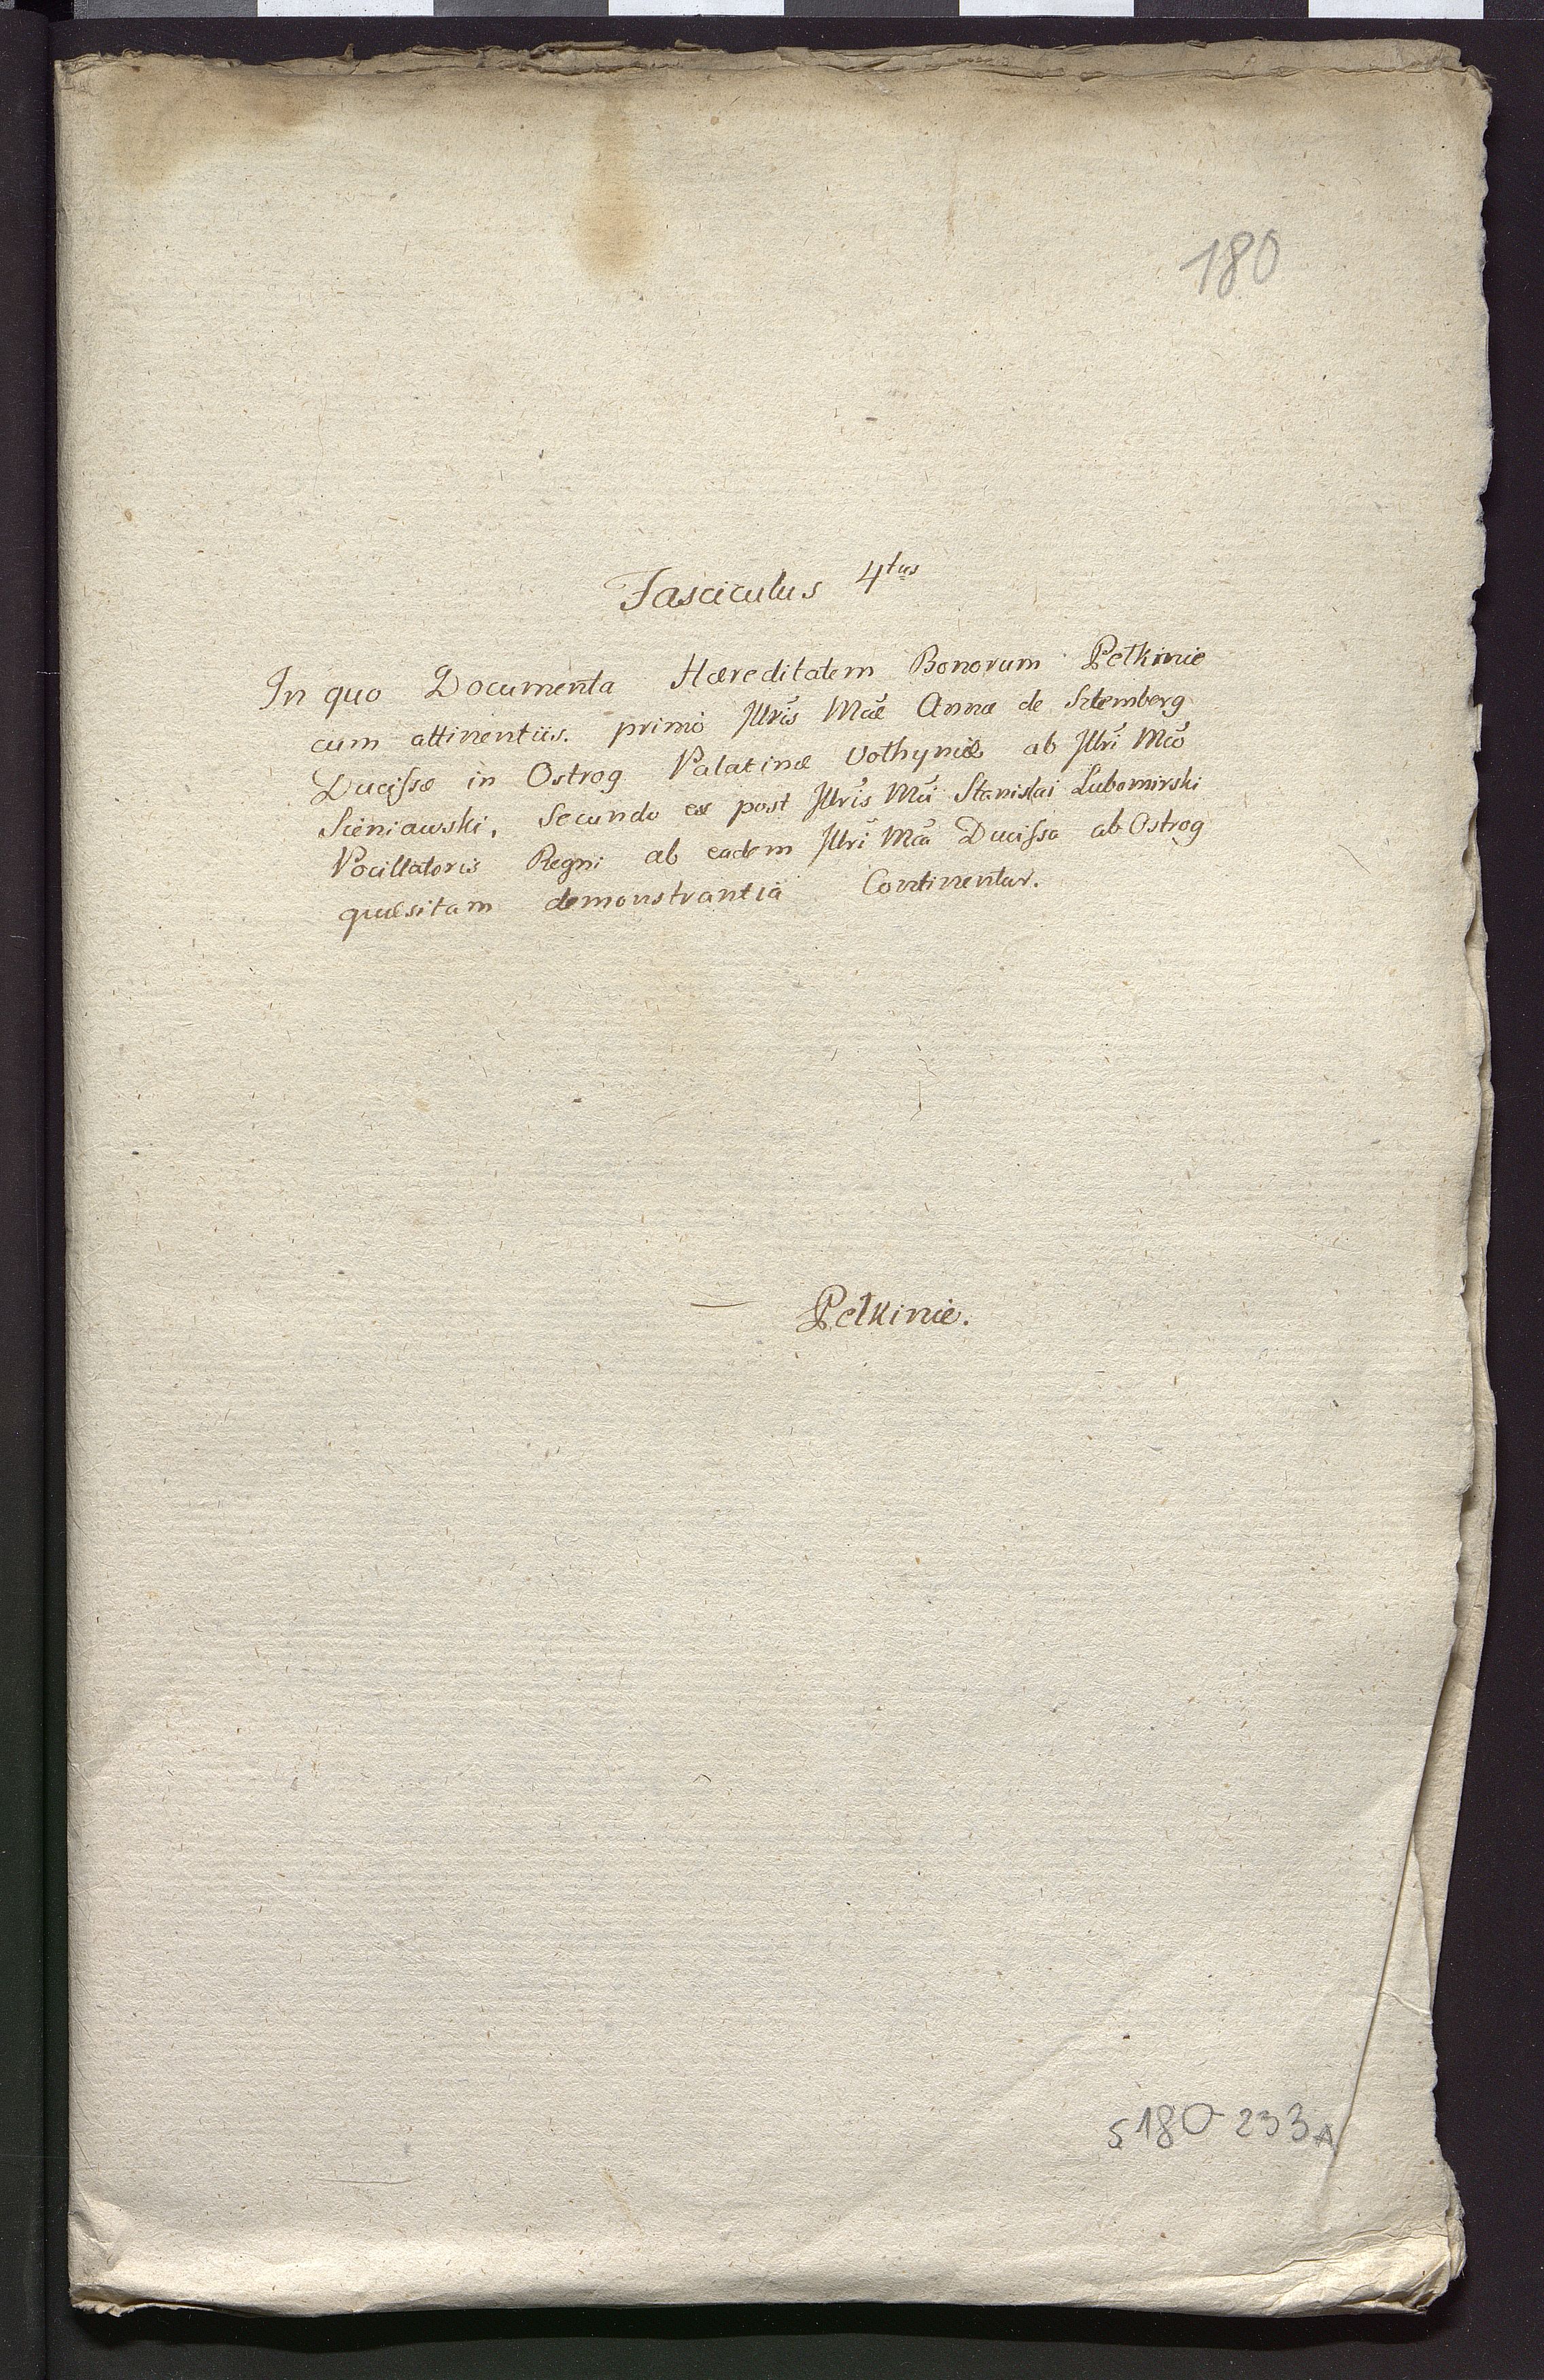 180
Fasciculus 4tus
In quo Documenta Hæreditatem Bonorum Pełkinie
cum attinentiis. primo Jllris Mcæ Annæ de Sztemberg
Ducissæ in Ostrog Palatinæ Vołhyniæ ab Jllri Mco
Sieniawski, Secundo ex post Jllris Mci Stanislai Lubomirski
Pocillatoris Regni ab eadem Jllri Mca Ducissa ab Ostrog
quæsitam demonstrantia Continentur.
— Pełkinie.
s 180-233A